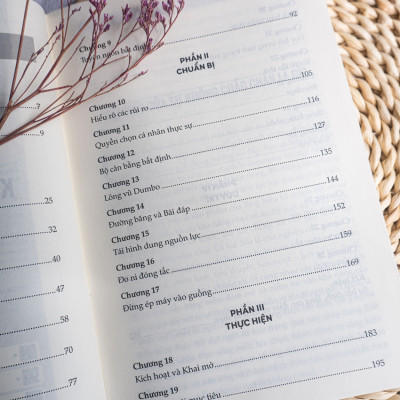 7
9
25
32
40
47
58
70
77
Chương 9
Tuyên ngôn bất định 92
PHẦN II
CHUẨN BỊ
Chương 10
Hiểu rõ các rủi ro 105
Chương 11
Quyền chọn cá nhân thực sự 116
Chương 12
Bộ cân bằng bất định 127
Chương 13
Lông vũ Dumbo 135
Chương 14
Đường băng và Bãi đáp 144
Chương 15
Tái hình dung nguồn lực 152
Chương 16
Đo ni đóng tấc 159
Chương 17
Đừng ép máy vào guồng 169
PHẦN III
THỰC HIỆN
Chương 18
Kích hoạt và Khai mở 183
Chương 19
mục tiêu 195